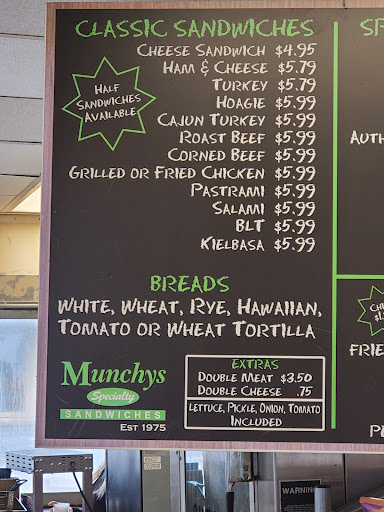 CLASSIC SANDWICHES
CHEESE SANDWICH $4.95
HAM & CHEESE $5.79
TURKEY $5.79
HOAGIE $5.99
CAJUN TURKEY $5.99
ROAST BEEF $5.99
CORNED BEEF $5.99
GRILLED OR FRIED CHICKEN $5.99
PASTRAMI $5.99
SALAMI $5.99
BLT $5.99
KIELBASA $5.99
HALF
SANDWICHES
AVAILABLE
BREADS
WHITE, WHEAT, RYE, HAWAIIAN,
TOMATO OR WHEAT TORTILLA
Munchys
Specialty
SANDWICHES
EST 1975
EXTRAS
DOUBLE MEAT $3.50
DOUBLE CHEESE .75
LETTUCE, PICKLE, ONION, TOMATO
INCLUDED
WARNING